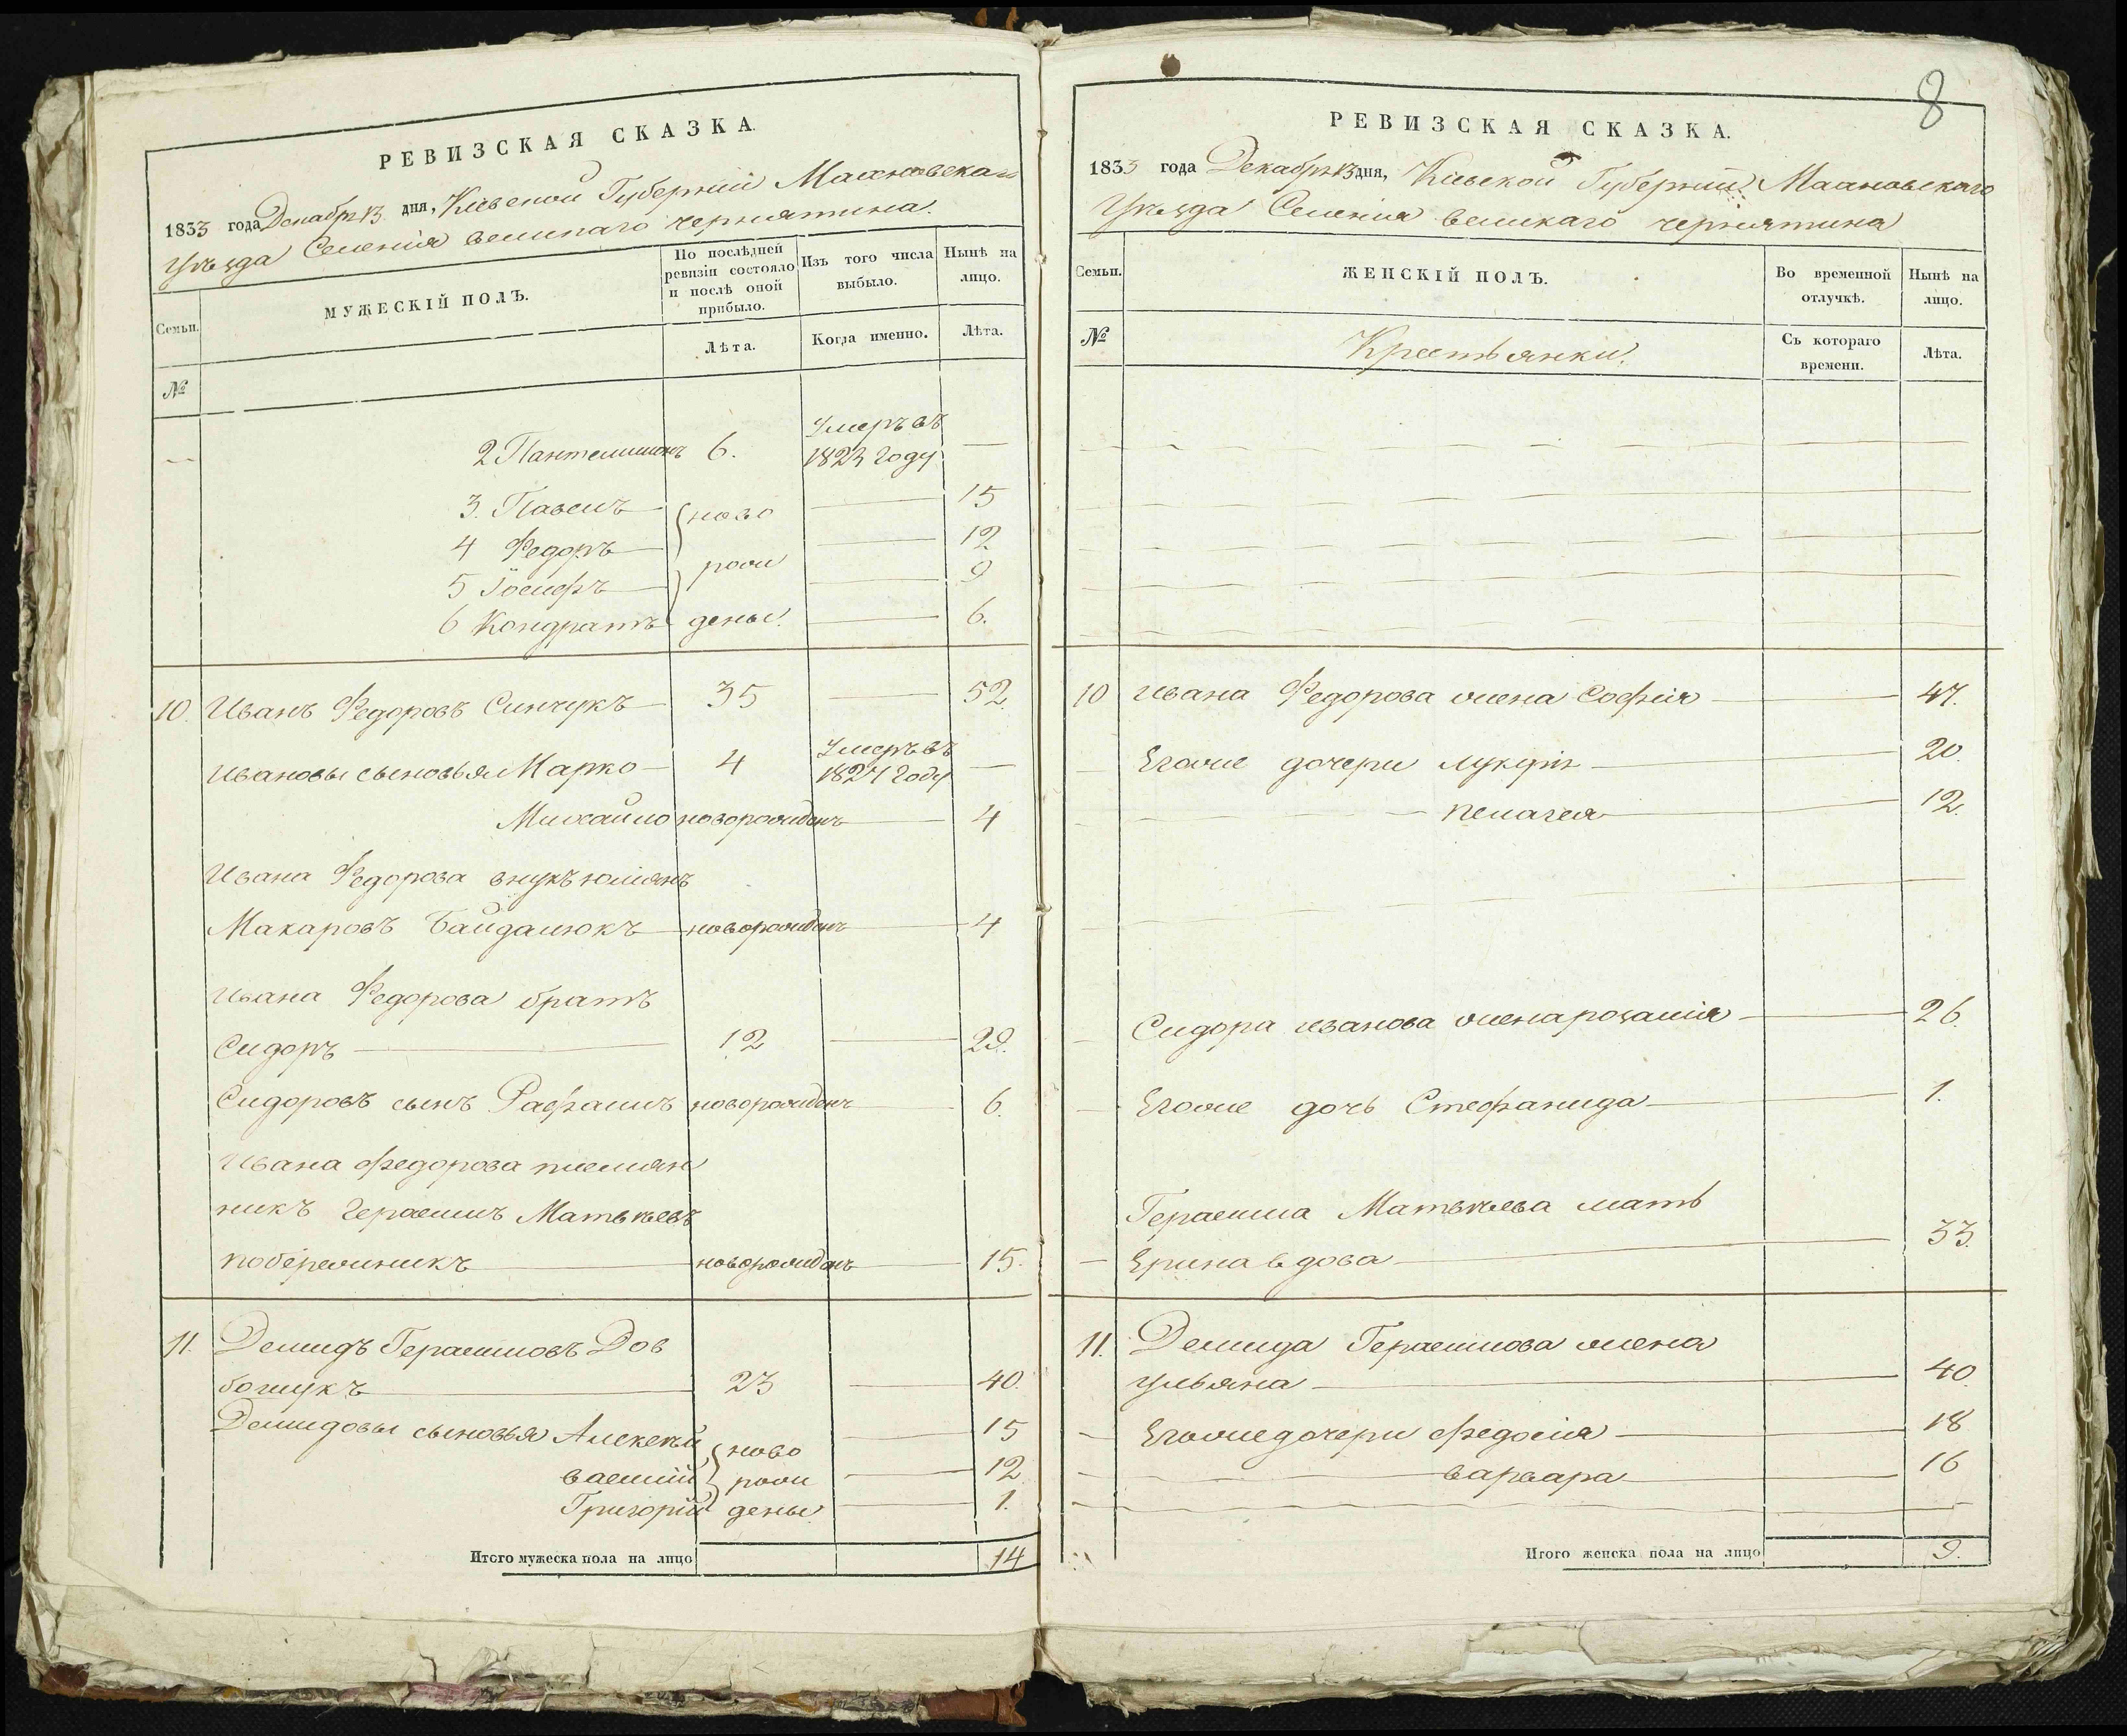 РЕВИЗСКАЯ СКАЗКА.
1833 года Декабря 13 дня, Кіевской Губерніи Махновскаго
Уѣзда Селенія Великаго чернятина.
Семьи.
МУЖЕСКІЙ ПОЛЪ.
По послѣдней ревизіи состояло и послѣ оной прибыло.
Изъ того числа выбыло.
Нынѣ на лицо.
№
Лѣта.
Когда именно.
Лѣта.
2 Пантелимонъ 6. Умеръ въ 1823 году —
3. Павелъ — ново — 15
4 Федоръ — — 12
5 Іосифъ — рож — 9
6 Кондратъ дены. — 6.
10. Иванъ Федоровъ Синчукъ — 35 — 52.
Ивановы сыновья Марко — 4 Умеръ въ 1827 году —
Михайло новорожденъ — 4
Ивана Федорова внукъ юліянъ
Макаровъ Байдалюкъ — новорожденъ — 4
Ивана Федорова братъ
Сидоръ — 12 — 29.
Сидоровъ сынъ Рафаилъ новорожденъ — 6.
Ивана Федорова племян
никъ Герасимъ Матвѣевъ
побережникъ — новорожденъ — 15.
11. Демидъ Герасимовъ Дов
божукъ — 23 — 40.
Демидовы сыновья Алексѣй ново — 15
василій рож — 12
Григорій дены — 1.
Итого мужеска пола на лицо 14
8
РЕВИЗСКАЯ СКАЗКА.
1833 года Декабря 13 дня, Кіевской Губерніи Махновскаго
Уѣзда Селенія великаго чернятина
Семьи.
ЖЕНСКІЙ ПОЛЪ.
Во временной отлучкѣ.
Нынѣ на лицо.
№
Крестьянки.
Съ котораго времени.
Лѣта.
10 Ивана Федорова жена Софія — 47.
Егоже дочери Лукфія — 20.
— пелагея — 12.
Сидора иванова жена розалія — 26.
— Егоже дочь Стефанида — 1.
Герасима Матвѣева мать
— Ерина вдова — 33.
11. Демида Герасимова жена
ульяна — 40.
— Егоже дочери федосія — 18
— варвара — 16
Итого женска пола на лицо 9.